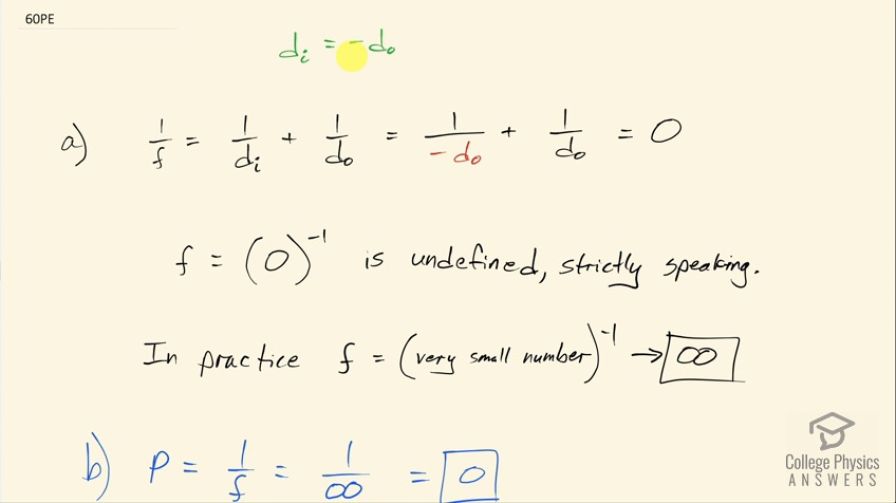 60PE
dᵢ = -d₀
a) 1/f = 1/dᵢ + 1/d₀ = 1/-d₀ + 1/d₀ = 0
f = (0)⁻¹ is undefined, strictly speaking.
In practice f = (very small number)⁻¹ → ∞
b) P = 1/f = 1/∞ = 0
College Physics
ANSWERS